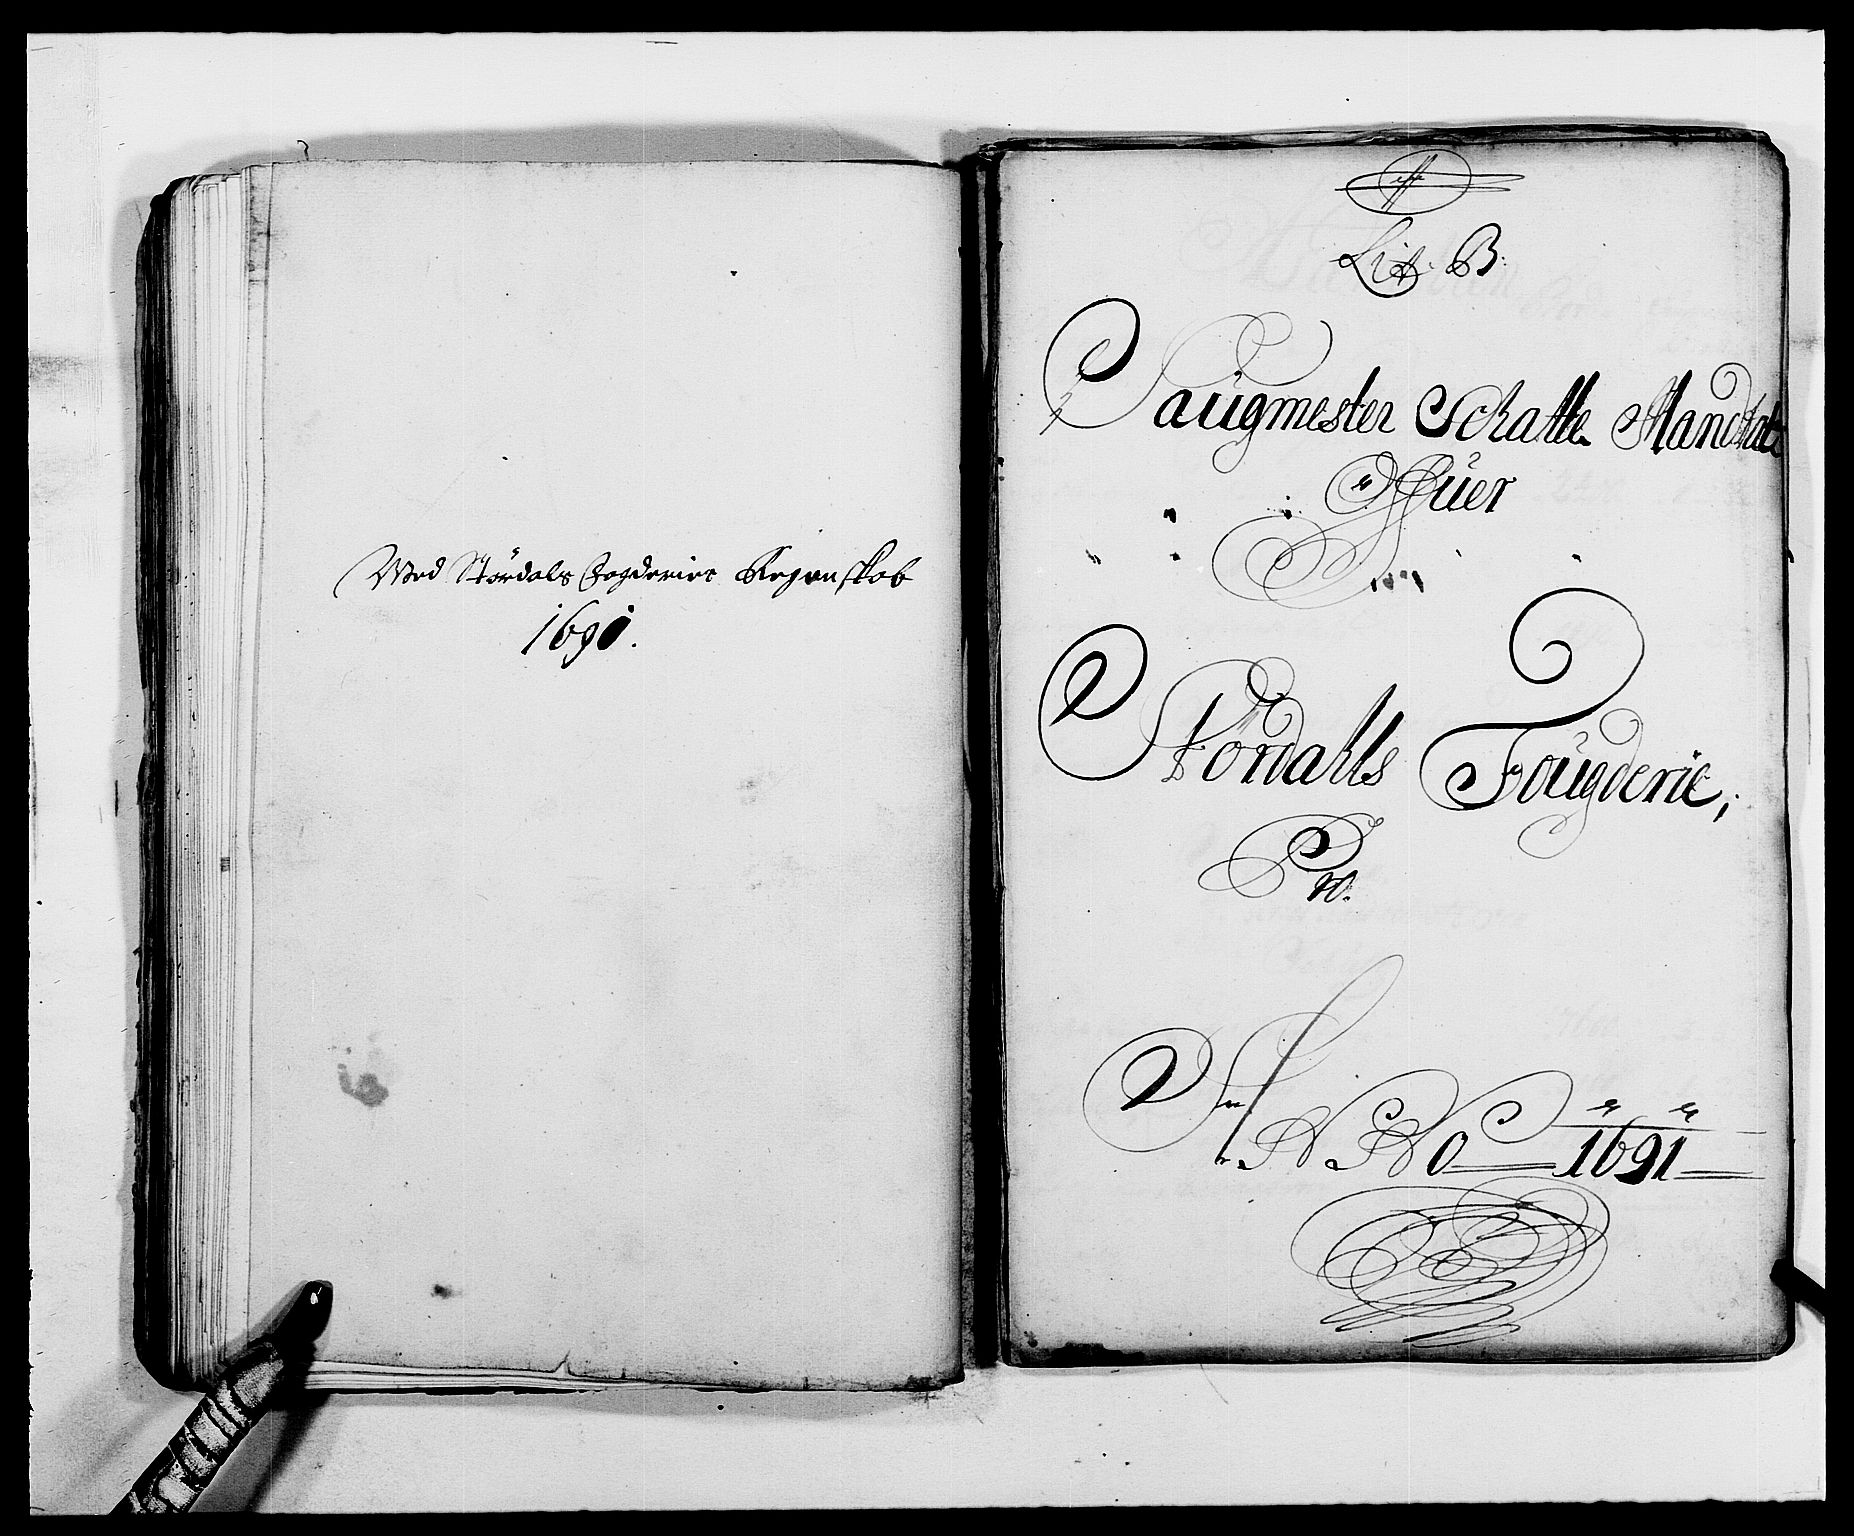 Med Størdals Fogderies Regenskab
1691.
Lit: B:
Saugmester Schatte Mandtal
Offuer
Størdahls Fougderie,
Pro.
ANNO 1691